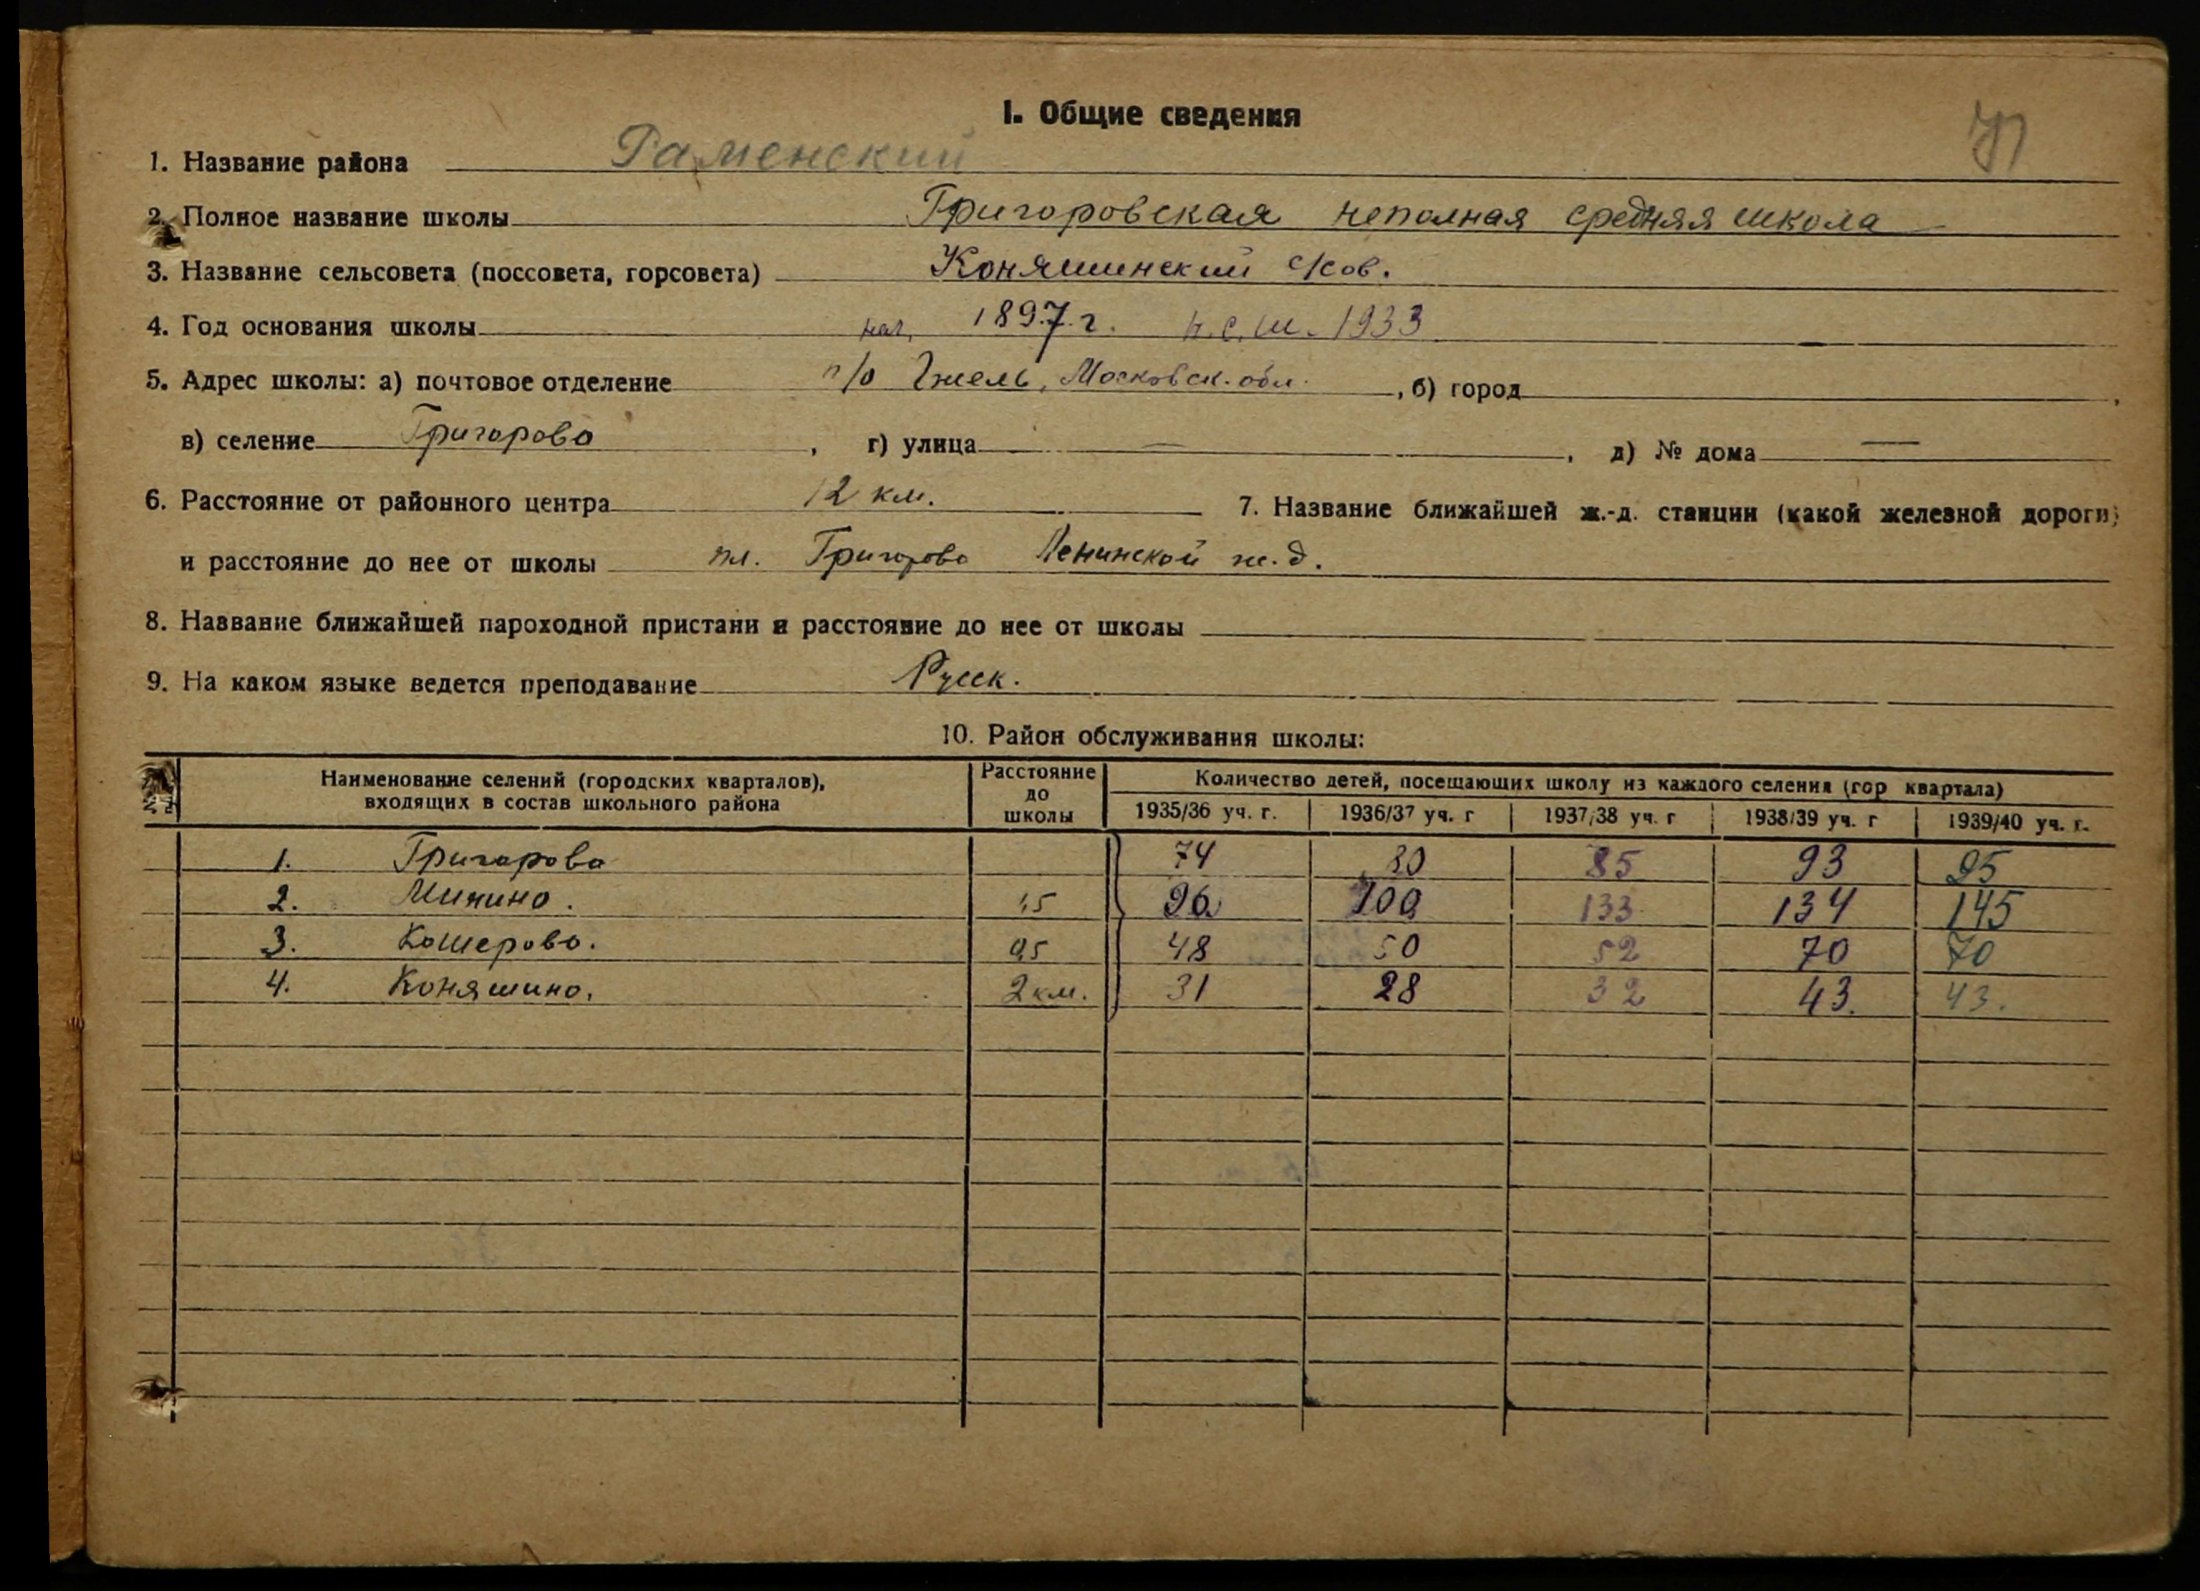 I. Общие сведения
1. Название района Раменский
2. Полное название школы Григоровская неполная средняя школа
3. Название сельсовета (поссовета, горсовета) Коняшинский с/сов.
4. Год основания школы нач. 1897 г. н.с.ш. 1933
5. Адрес школы: а) почтовое отделение п/о Гжель, Московск. обл. , б) город ,
в) селение Григорово , г) улица — , д) № дома —
6. Расстояние от районного центра 12 км. 7. Название ближайшей ж.-д. станции (какой железной дороги)
и расстояние до нее от школы пл. Григорово Ленинской ж.д.
8. Название ближайшей пароходной пристани и расстояние до нее от школы
9. На каком языке ведется преподавание Русск.
10. Район обслуживания школы:
Наименование селений (городских кварталов), входящих в состав школьного района | Расстояние до школы | Количество детей, посещающих школу из каждого селения (гор квартала)
1935/36 уч. г. | 1936/37 уч. г | 1937/38 уч. г | 1938/39 уч. г | 1939/40 уч. г.
1. Григорово 74 80 85 93 95
2. Минино. 1,5 96 100 133 134 145
3. Кошерово. 0,5 48 50 52 70 70
4. Коняшино. 2 км. 31 28 32 43. 43.